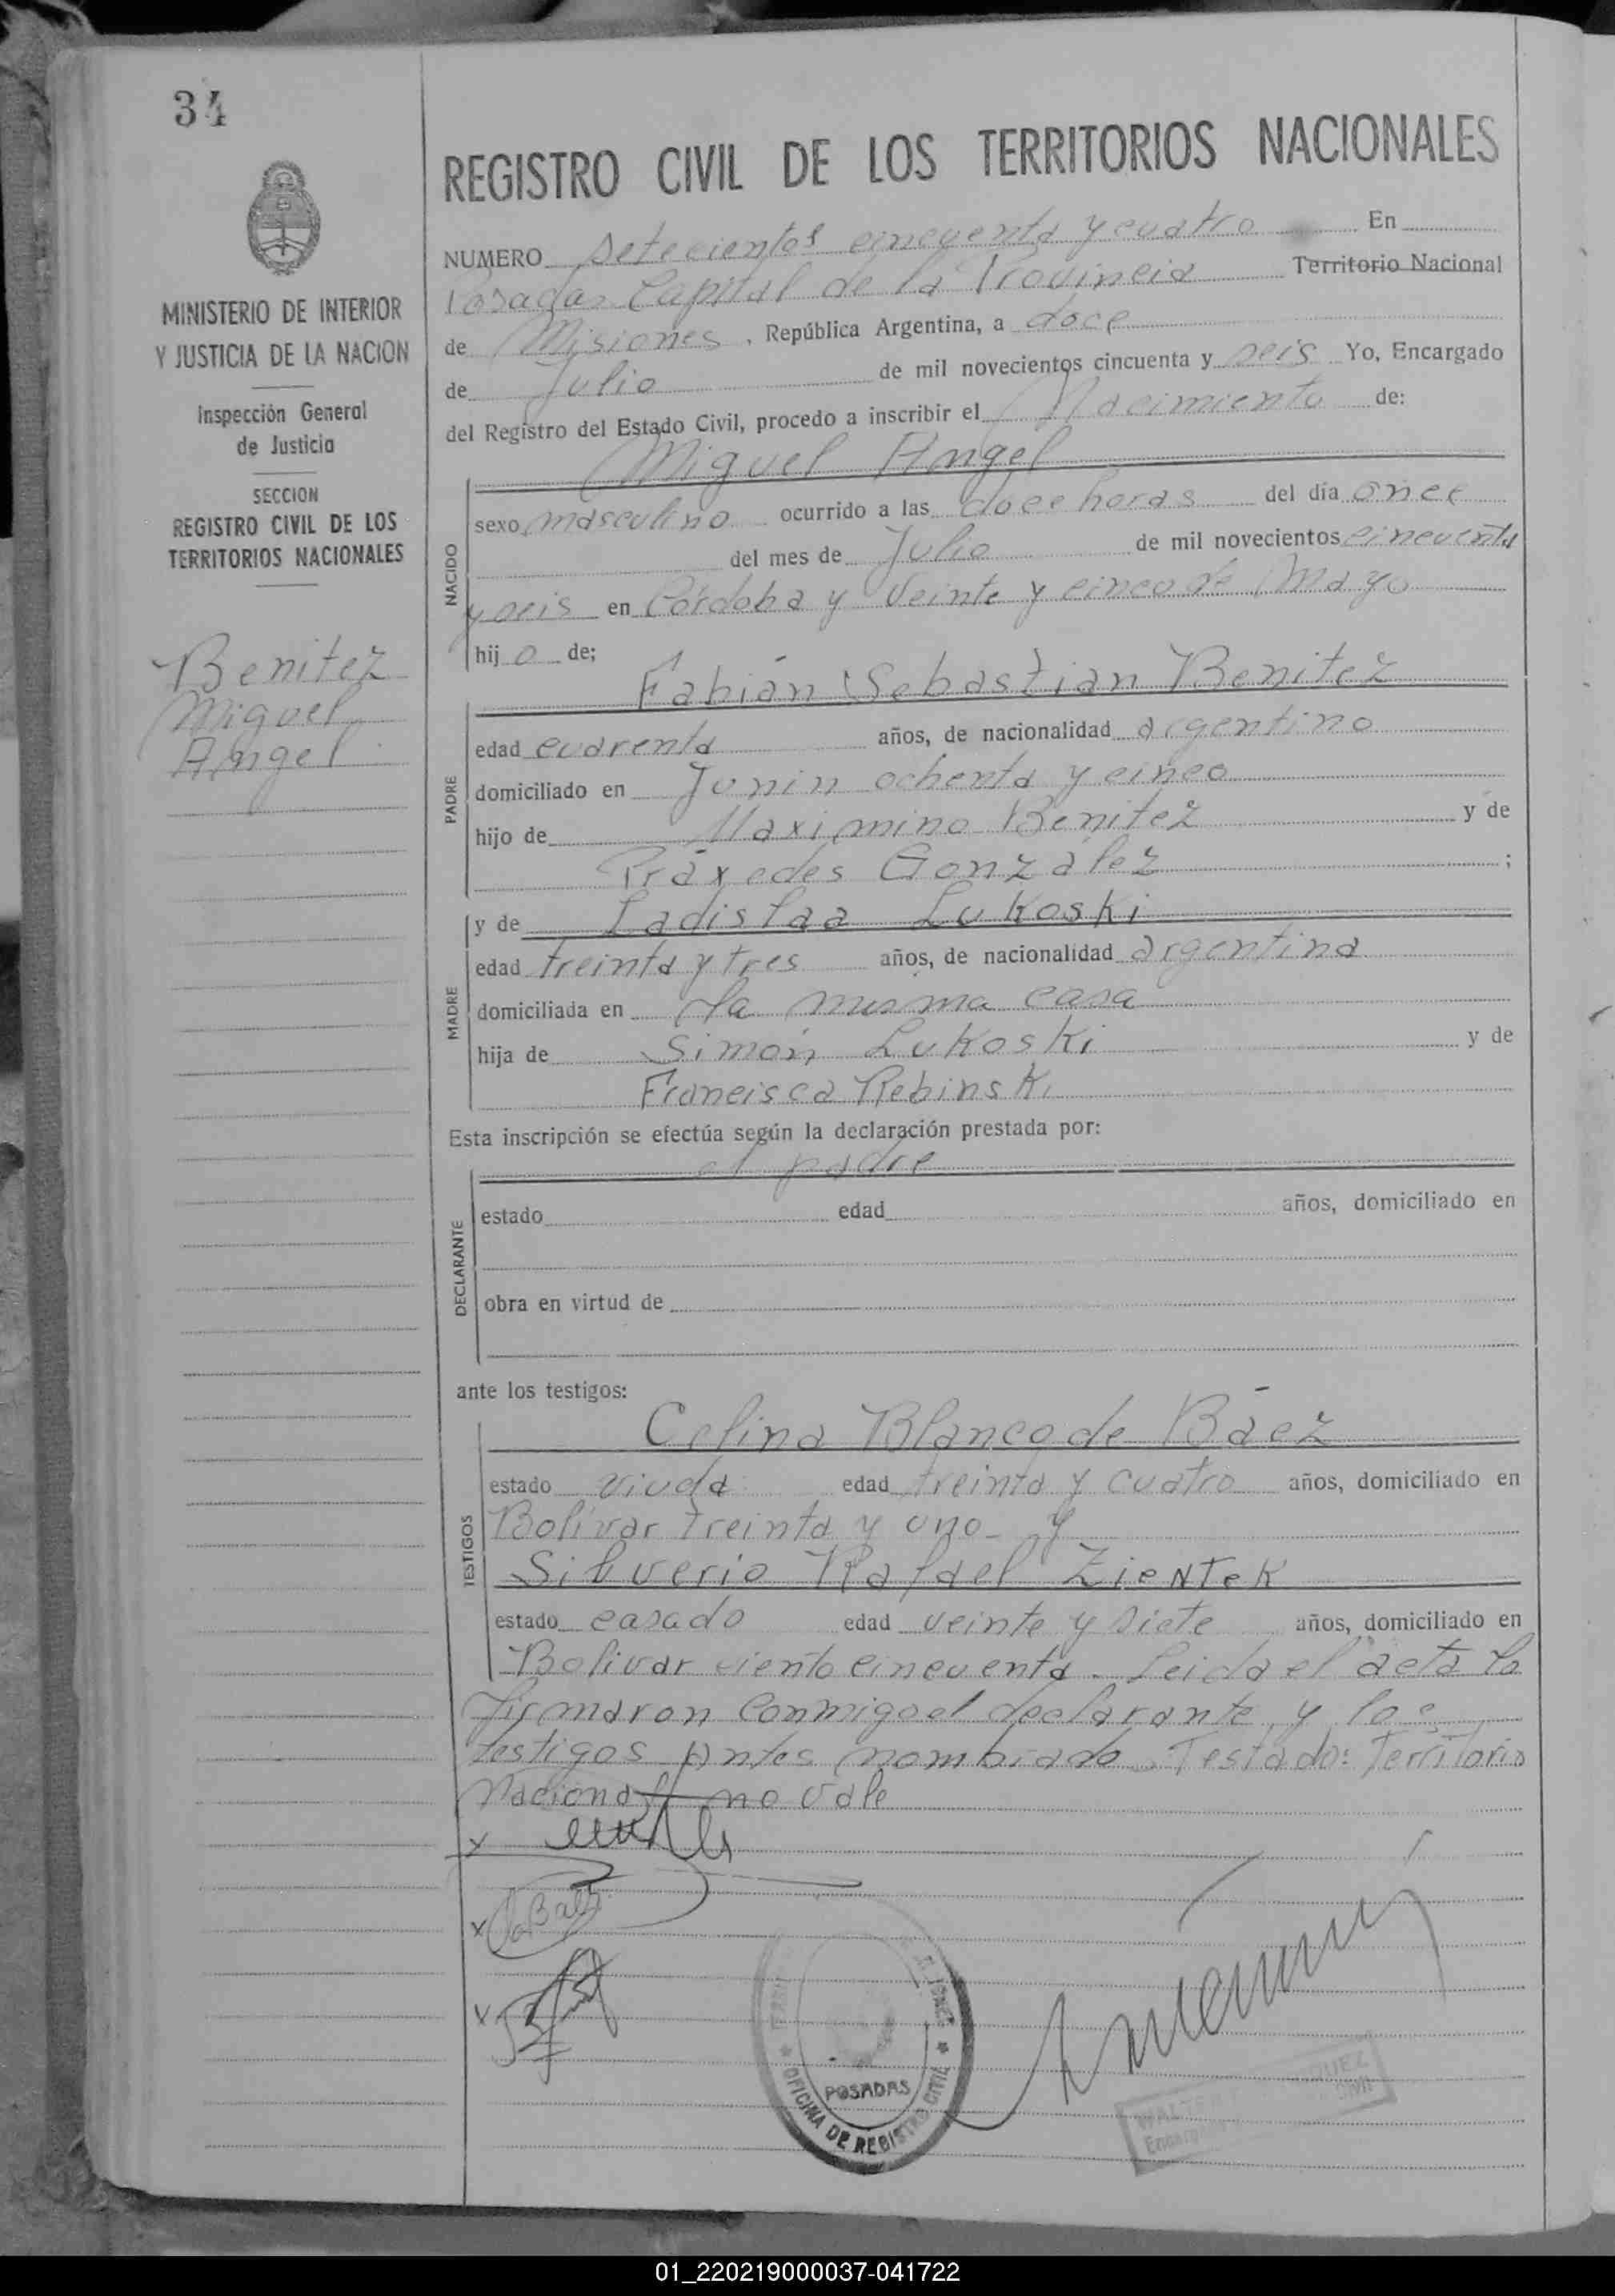 34
MINISTERIO DE INTERIOR
Y JUSTICIA DE LA NACION
Inspección General
de Justicia
SECCION
REGISTRO CIVIL DE LOS
TERRITORIOS NACIONALES
Benitez
Miguel
Angel
REGISTRO CIVIL DE LOS TERRITORIOS NACIONALES
NUMERO setecientos cincuenta y cuatro En
Posadas Capital de la Provincia Territorio Nacional
de Misiones, República Argentina, a doce
de Julio de mil novecientos cincuenta y seis Yo, Encargado
del Registro del Estado Civil, procedo a inscribir el Nacimiento de:
Miguel Angel
NACIDO
sexo masculino ocurrido a las doce horas del día once
del mes de Julio de mil novecientos cincuenta
y seis en Córdoba y Veinte y cinco de Mayo
hijo de;
Fabián Sebastián Benitez
PADRE
edad cuarenta años, de nacionalidad argentino
domiciliado en Junin ochenta y cinco
hijo de Maximino Benitez y de
Práxedes González ;
y de Ladislaa Lukoski
MADRE
edad treinta y tres años, de nacionalidad argentina
domiciliada en la misma casa
hija de Simón Lukoski y de
Francisca Rebinski
Esta inscripción se efectúa según la declaración prestada por:
el padre
DECLARANTE
estado edad años, domiciliado en
obra en virtud de
ante los testigos:
Celina Blanco de Báez
TESTIGOS
estado viuda edad treinta y cuatro años, domiciliado en
Bolívar treinta y uno - y
Silverio Rafael Zientek
estado casado edad veinte y siete años, domiciliado en
Bolívar ciento cincuenta. Leida el acta la
firmaron conmigo el declarante y los
testigos antes nombrado. Testado: Territorio
Nacional no vale
x
x
x
POSADAS
OFICINA DE REGISTRO CIVIL
01_220219000037-041722